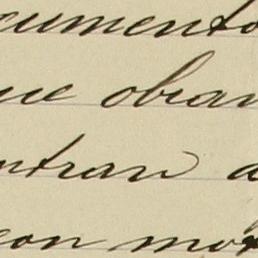 cumento
ue obran
ntran a
con mo